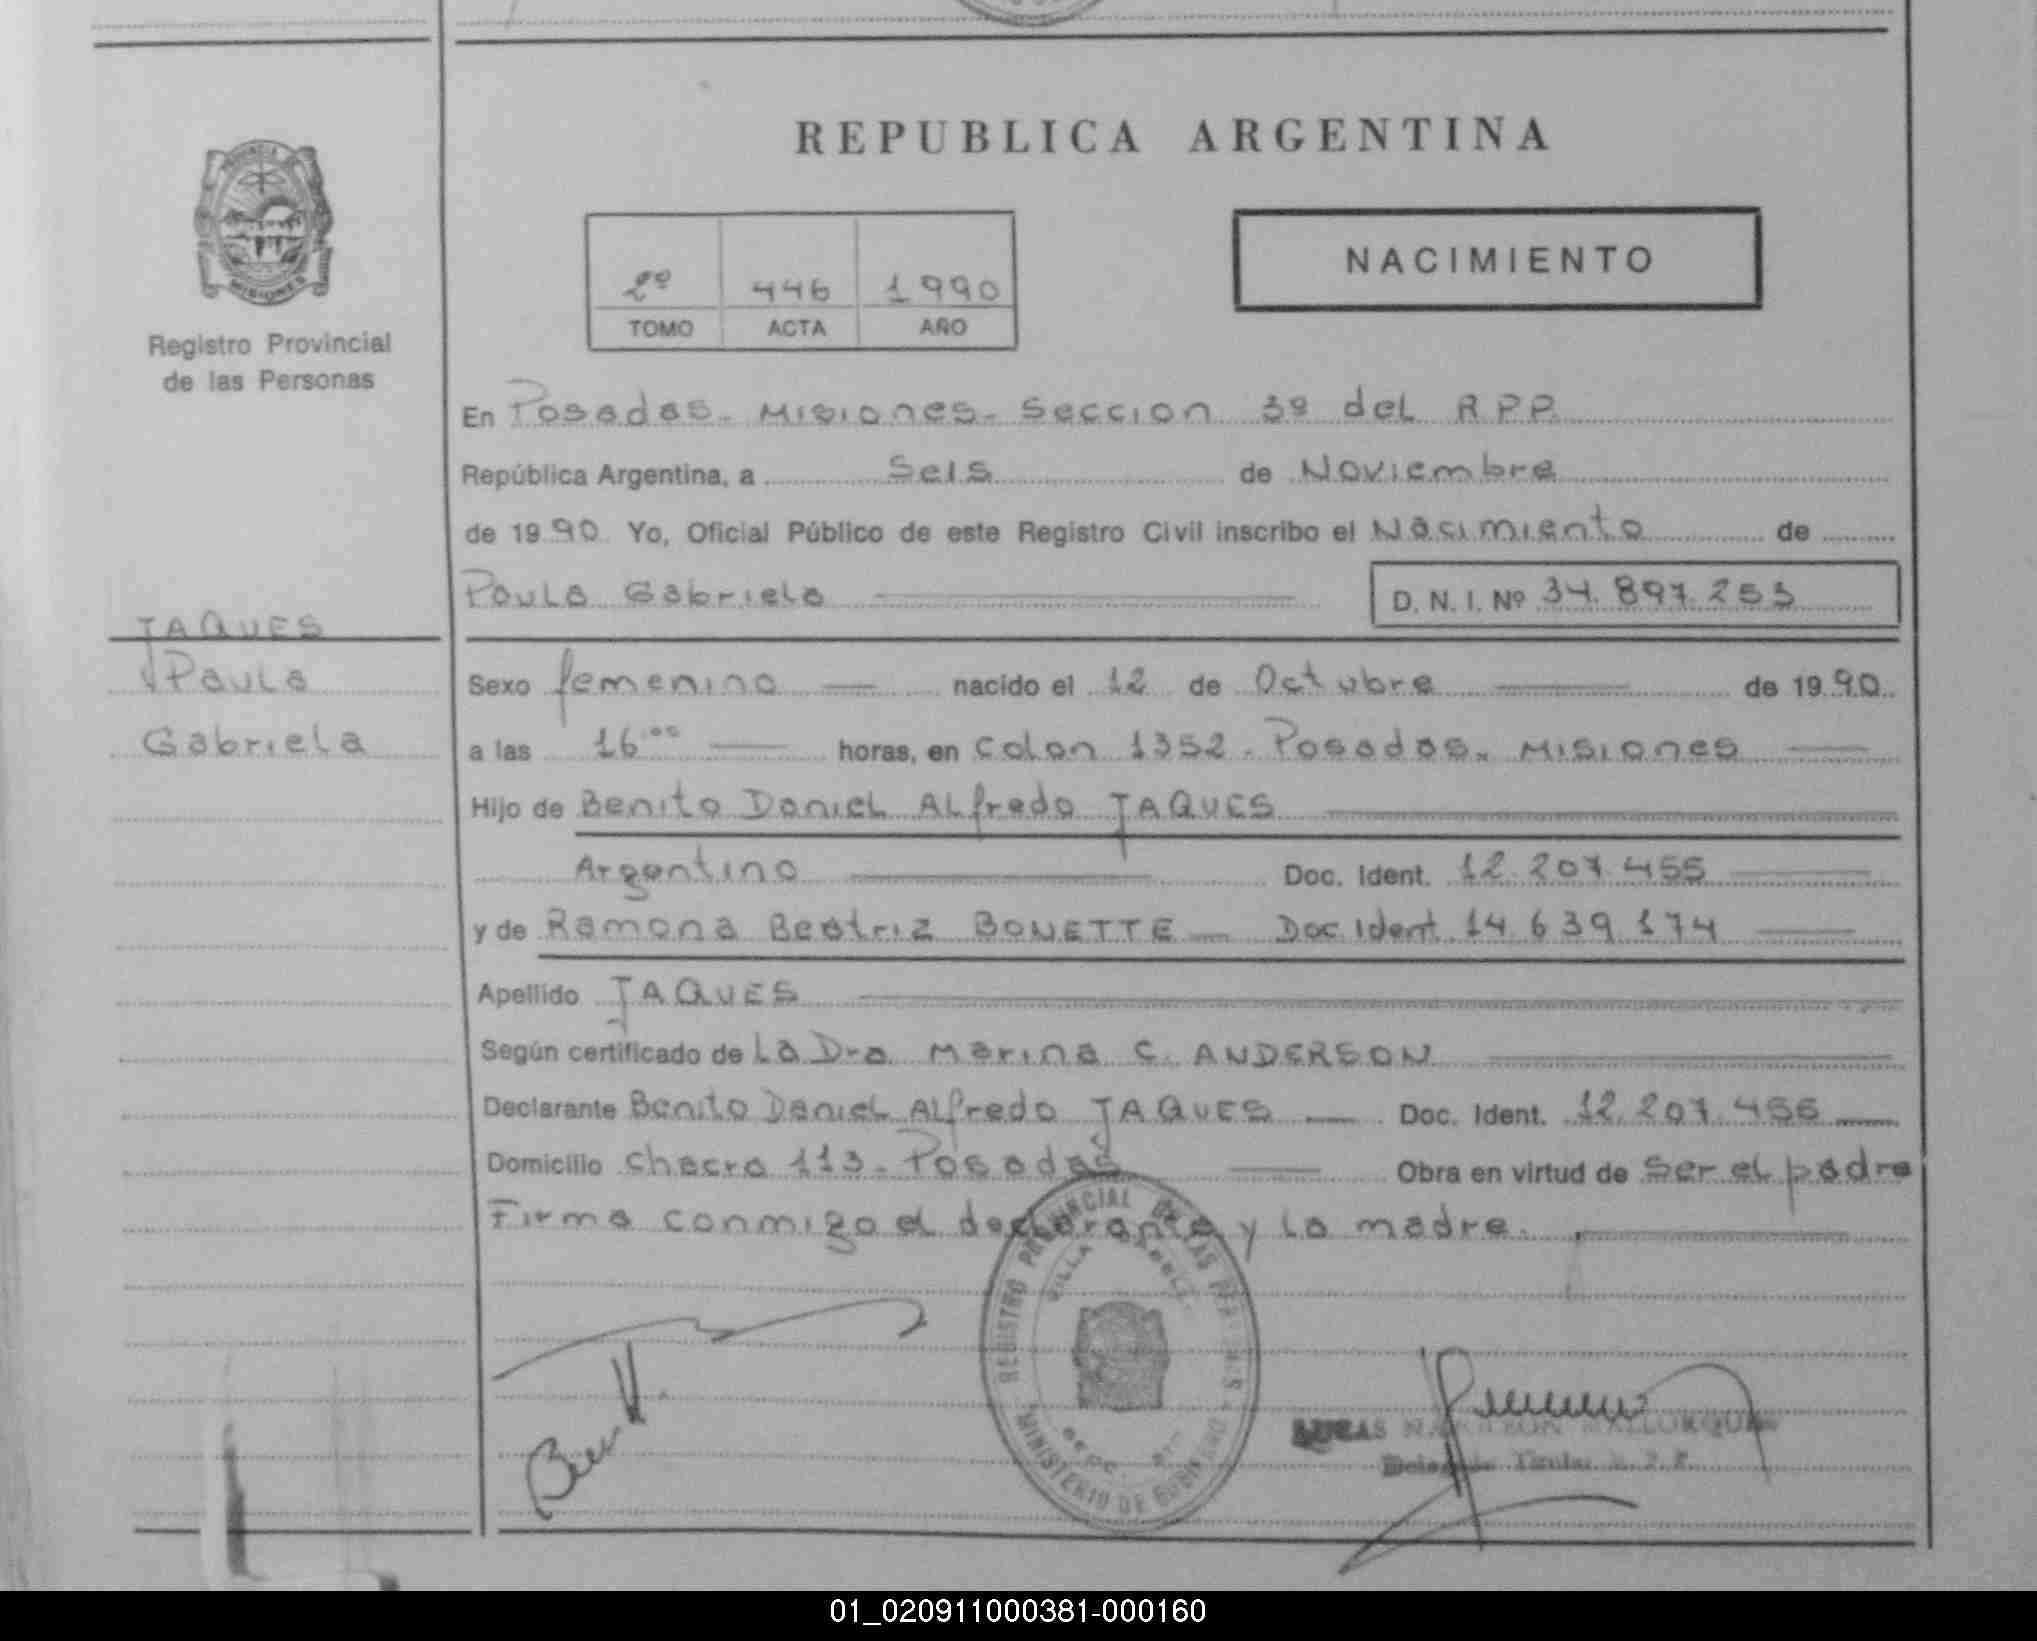 REPUBLICA ARGENTINA
PROVINCIA
MISIONES
Registro Provincial
de las Personas
NACIMIENTO
2º 446 1990
TOMO ACTA AÑO
En Posadas. Misiones. Seccion 3º del R.P.P.
República Argentina, a Seis de Noviembre
de 1990 Yo, Oficial Público de este Registro Civil inscribo el Nacimiento de
Paula Gabriela D. N. I. Nº 34.897.253
JAQUES
Paula
Gabriela
Sexo femenino nacido el 12 de Octubre de 1990.
a las 16.00 horas, en Colon 1352. Posadas. Misiones
Hijo de Benito Daniel Alfredo JAQUES
Argentino Doc. Ident. 12.207.455
y de Ramona Beatriz BONETTE Doc Ident. 14.639.174
Apellido JAQUES
Según certificado de La Dra. Marina C. ANDERSON
Declarante Benito Daniel Alfredo JAQUES Doc. Ident. 12.207.456
Domicilio Chacra 113. Posadas Obra en virtud de Ser el padre
Firma conmigo el declarante y la madre.
REGISTRO PROVINCIAL DE LAS PERSONAS
VILLA
MINISTERIO DE GOBIERNO
01_020911000381-000160